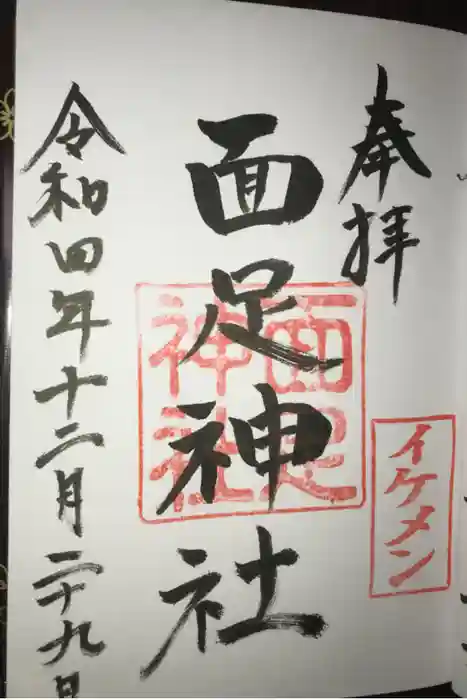 奉拝
イケメン
面足神社
面足神社
令和四年十二月二十九日